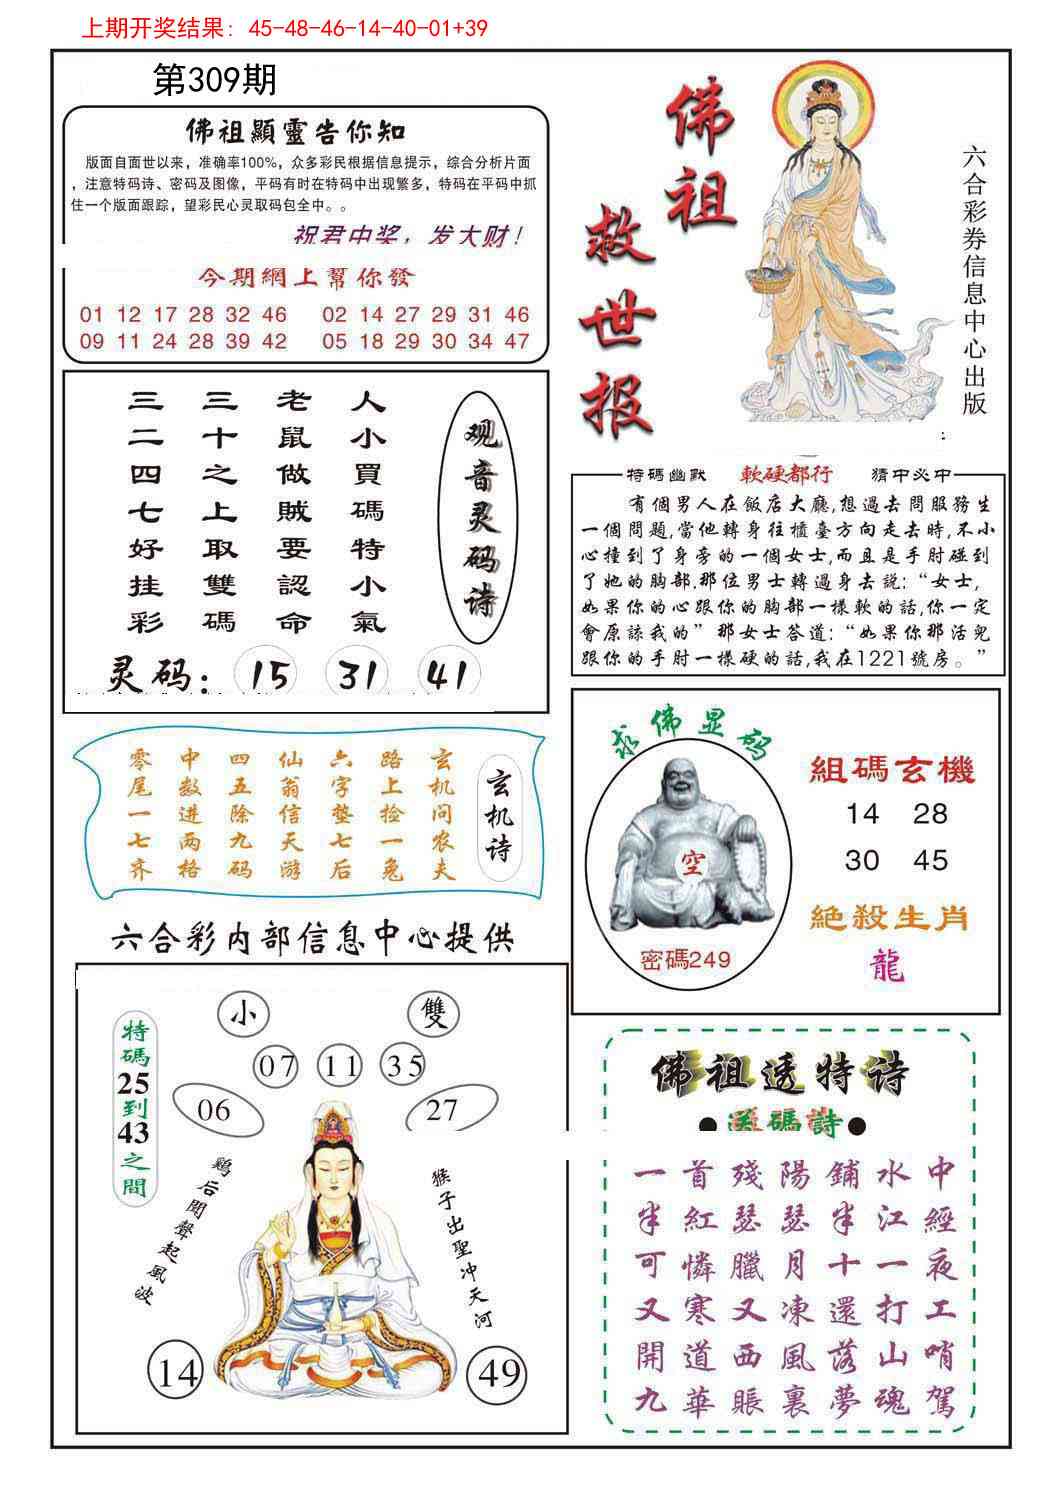 上期开奖结果: 45-48-46-14-40-01+39
第309期
佛祖顯靈告你知
版面自面世以来，准确率100%，众多彩民根据信息提示，综合分析片面
，注意特码诗、密码及图像，平码有时在特码中出现繁多，特码在平码中抓
住一个版面跟踪，望彩民心灵取码包全中。。
祝君中奖，发大财！
今期網上幫你發
01 12 17 28 32 46 02 14 27 29 31 46
09 11 24 28 39 42 05 18 29 30 34 47
佛祖
救世报
六合彩券信息中心出版
观音灵码诗
人小買碼特小氣
老鼠做賊要認命
三十之上取雙碼
三二四七好挂彩
灵码：15 31 41
特碼幽默 軟硬都行 猜中必中
有個男人在飯店大廳,想過去問服務生
一個問題,當他轉身往櫃臺方向走去時,不小
心撞到了身旁的一個女士,而且是手肘碰到
了她的胸部.那位男士轉過身去説:“女士,
如果你的心跟你的胸部一樣軟的話,你一定
會原該我的” 那女士答道:“如果你那活兜
跟你的手肘一樣硬的話,我在1221號房。”
玄机诗
玄机问农夫
路上捡一兔
六字垫七后
仙翁信天游
四五除九码
中数进两格
零尾一七齐
求佛显码
空
密碼249
組碼玄機
14 28
30 45
絕殺生肖
龍
六合彩内部信息中心提供
特碼25到43之間
小 雙
07 11 35
06 27
鷄后聞聲起風波
猴子出聖冲天河
14 49
佛祖透特诗
●送碼詩●
一首殘陽鋪水中
半紅瑟瑟半江經
可憐臘月十一夜
又寒又凍還打工
開道西風落山哨
九華賬裏夢魂駕